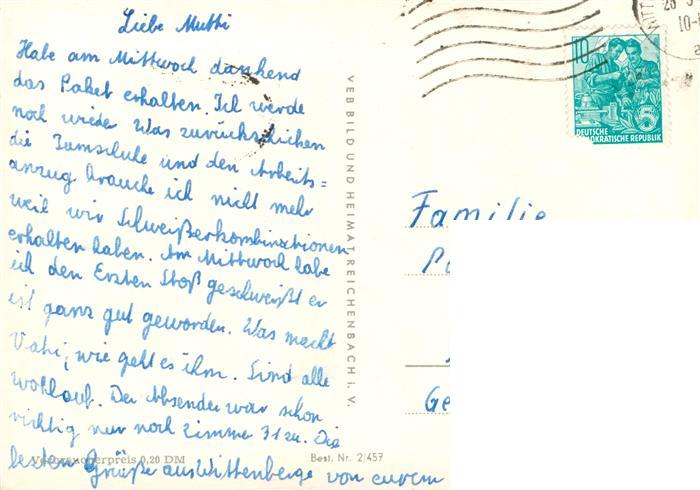 Liebe Mutti
Habe am Mittwoch dankend
das Paket erhalten. Ich werde
noch wieder Was zurückschicken
die Turnschuhe und den Arbeits=
anzug brauche ich nicht mehr
weil wir Schweißerkombinationen
erhalten haben. Am Mittwoch habe
ich den Ersten Stoß geschweißt er
ist ganz gut geworden. Was macht
Vati, wie geht es ihm. Sind alle
wohlauf. Der Absender war schon
richtig nur noch Zimmer 312a. Die
besten Grüße aus Wittenberge von eurem
Verbraucherpreis 0,20 DM
Best. Nr. 2/457
VEB BILD UND HEIMAT REICHENBACH i. V.
WITT
10
5
DEUTSCHE
DEMOKRATISCHE REPUBLIK
Familie
Ge